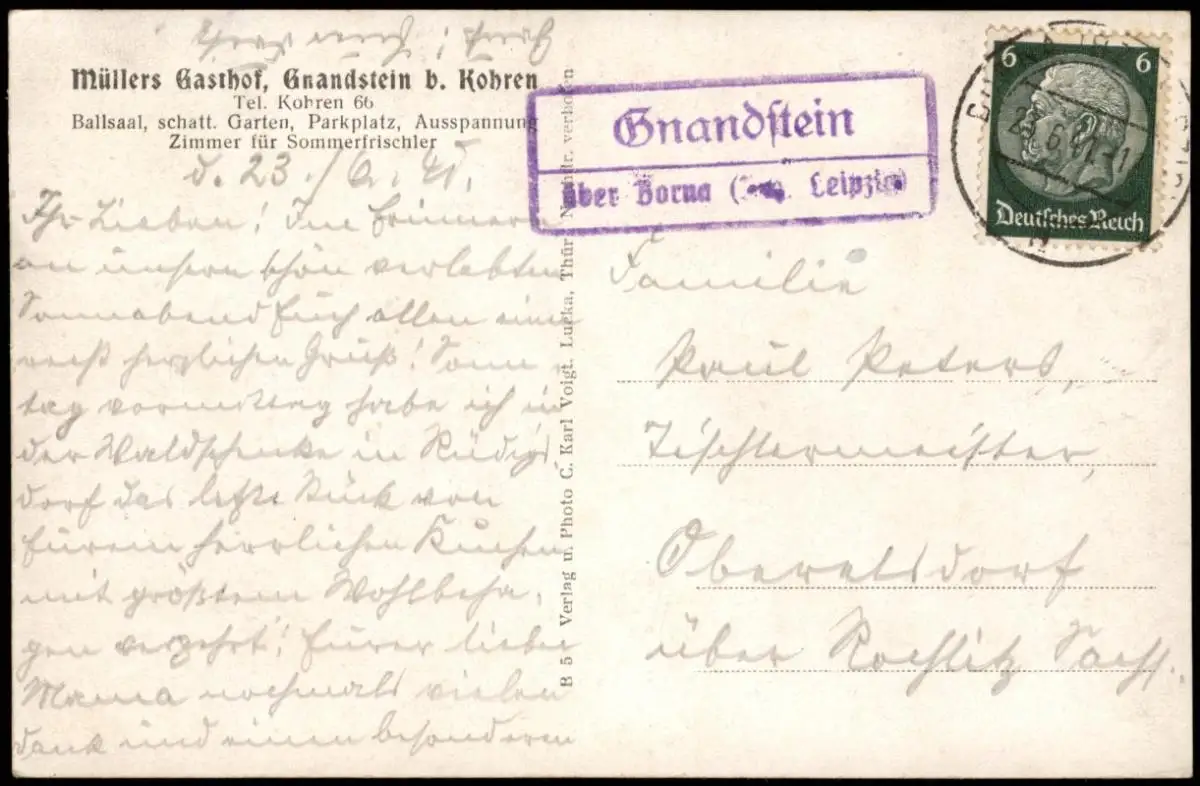 Müllers Gasthof, Gnandstein b. Kohren
Tel. Kohren 66
Ballsaal, schatt. Garten, Parkplatz, Ausspannung
Zimmer für Sommerfrischler
d. 23./6. 41.
Ihr Lieben! Im Erinnern
an unsern schön verlebten
Sonnabend Euch allen ein
recht herzlichen Gruß! Sonn
tag vormittag habe ich in
der Waldschenke in Rüdigs
dorf das letzte Stück von
Eurem herrlichen Kuchen
mit größtem Wohlbeha,
gen verzehrt! Eurer lieben
Mama nochmals vielen
Dank und einen besonderen
B 5 Verlag u. Photo C. Karl Voigt, Lucka, Thür. Nachdr. verboten
Gnandstein
über Borna (Bez. Leipzig)
6 6
Deutsches Reich
23.6.41
Familie
Paul Peters,
Tischlermeister,
Oberelsdorf
über Rochlitz Sachs.